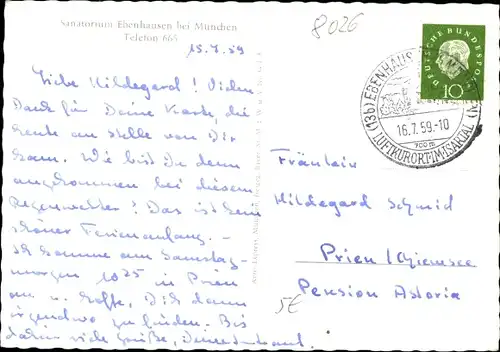 Sanatorium Ebenhausen bei München
Telefon 665
8026
15.7.59
Liebe Hildegard! Vielen
Dank für Deine Karte, die
heute an Stelle von Dir
kam. Wie bist Du denn
angekommen bei diesem
Regenwetter! Das ist kein
schöner Ferienanfang. –
Ich komme am Samstag-
morgen 10 25 in Prien
an u. hoffe, Dich dann
irgendwo zu finden. Bis
dahin viele Grüße,
DEUTSCHE BUNDESPOST
10
(13b) EBENHAUSEN
16.7.59.-10
700 m
LUFTKURORT IM ISARTAL
Fräulein
Hildegard Schmid
Prien/Chiemsee
Pension Astoria
5€